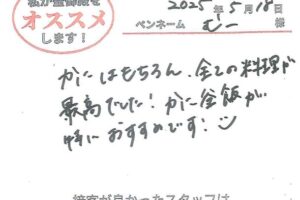 私が釜御飯を
オススメ
します！
2025年5月18日
ペンネーム むー 様
かにはもちろん、全ての料理が
最高でした！かに釜飯が
特におすすめです！
接客が良かったスタッフは